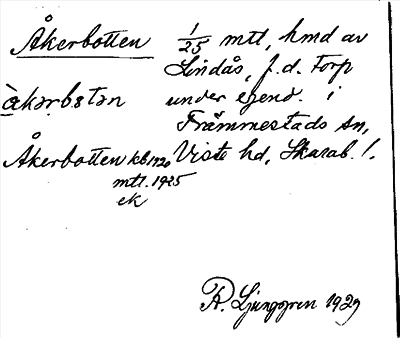 Åkerbotten 1/25 mtl, hmd av
Lindås, f.d. torp
åkərbɵtən under egend. i
Främmestads sn,
Åkerbotten kb 1720 Viste hd, Skarab. l.
mtl. 1925
ek
R. Ljunggren 1929